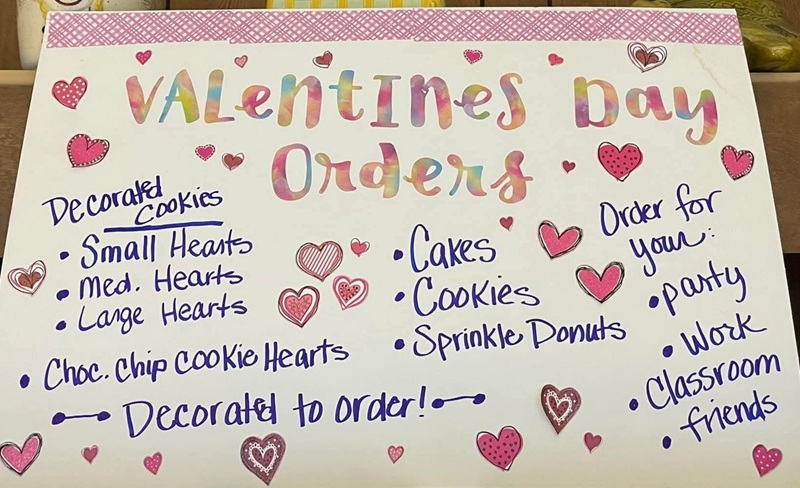 Valentines Day
Orders
Decorated
Cookies
• Small Hearts
• Med. Hearts
• Large Hearts
• Choc. Chip Cookie Hearts
Decorated to order!
• Cakes
• Cookies
• Sprinkle Donuts
Order for
your:
• party
• Work
• Classroom
• friends